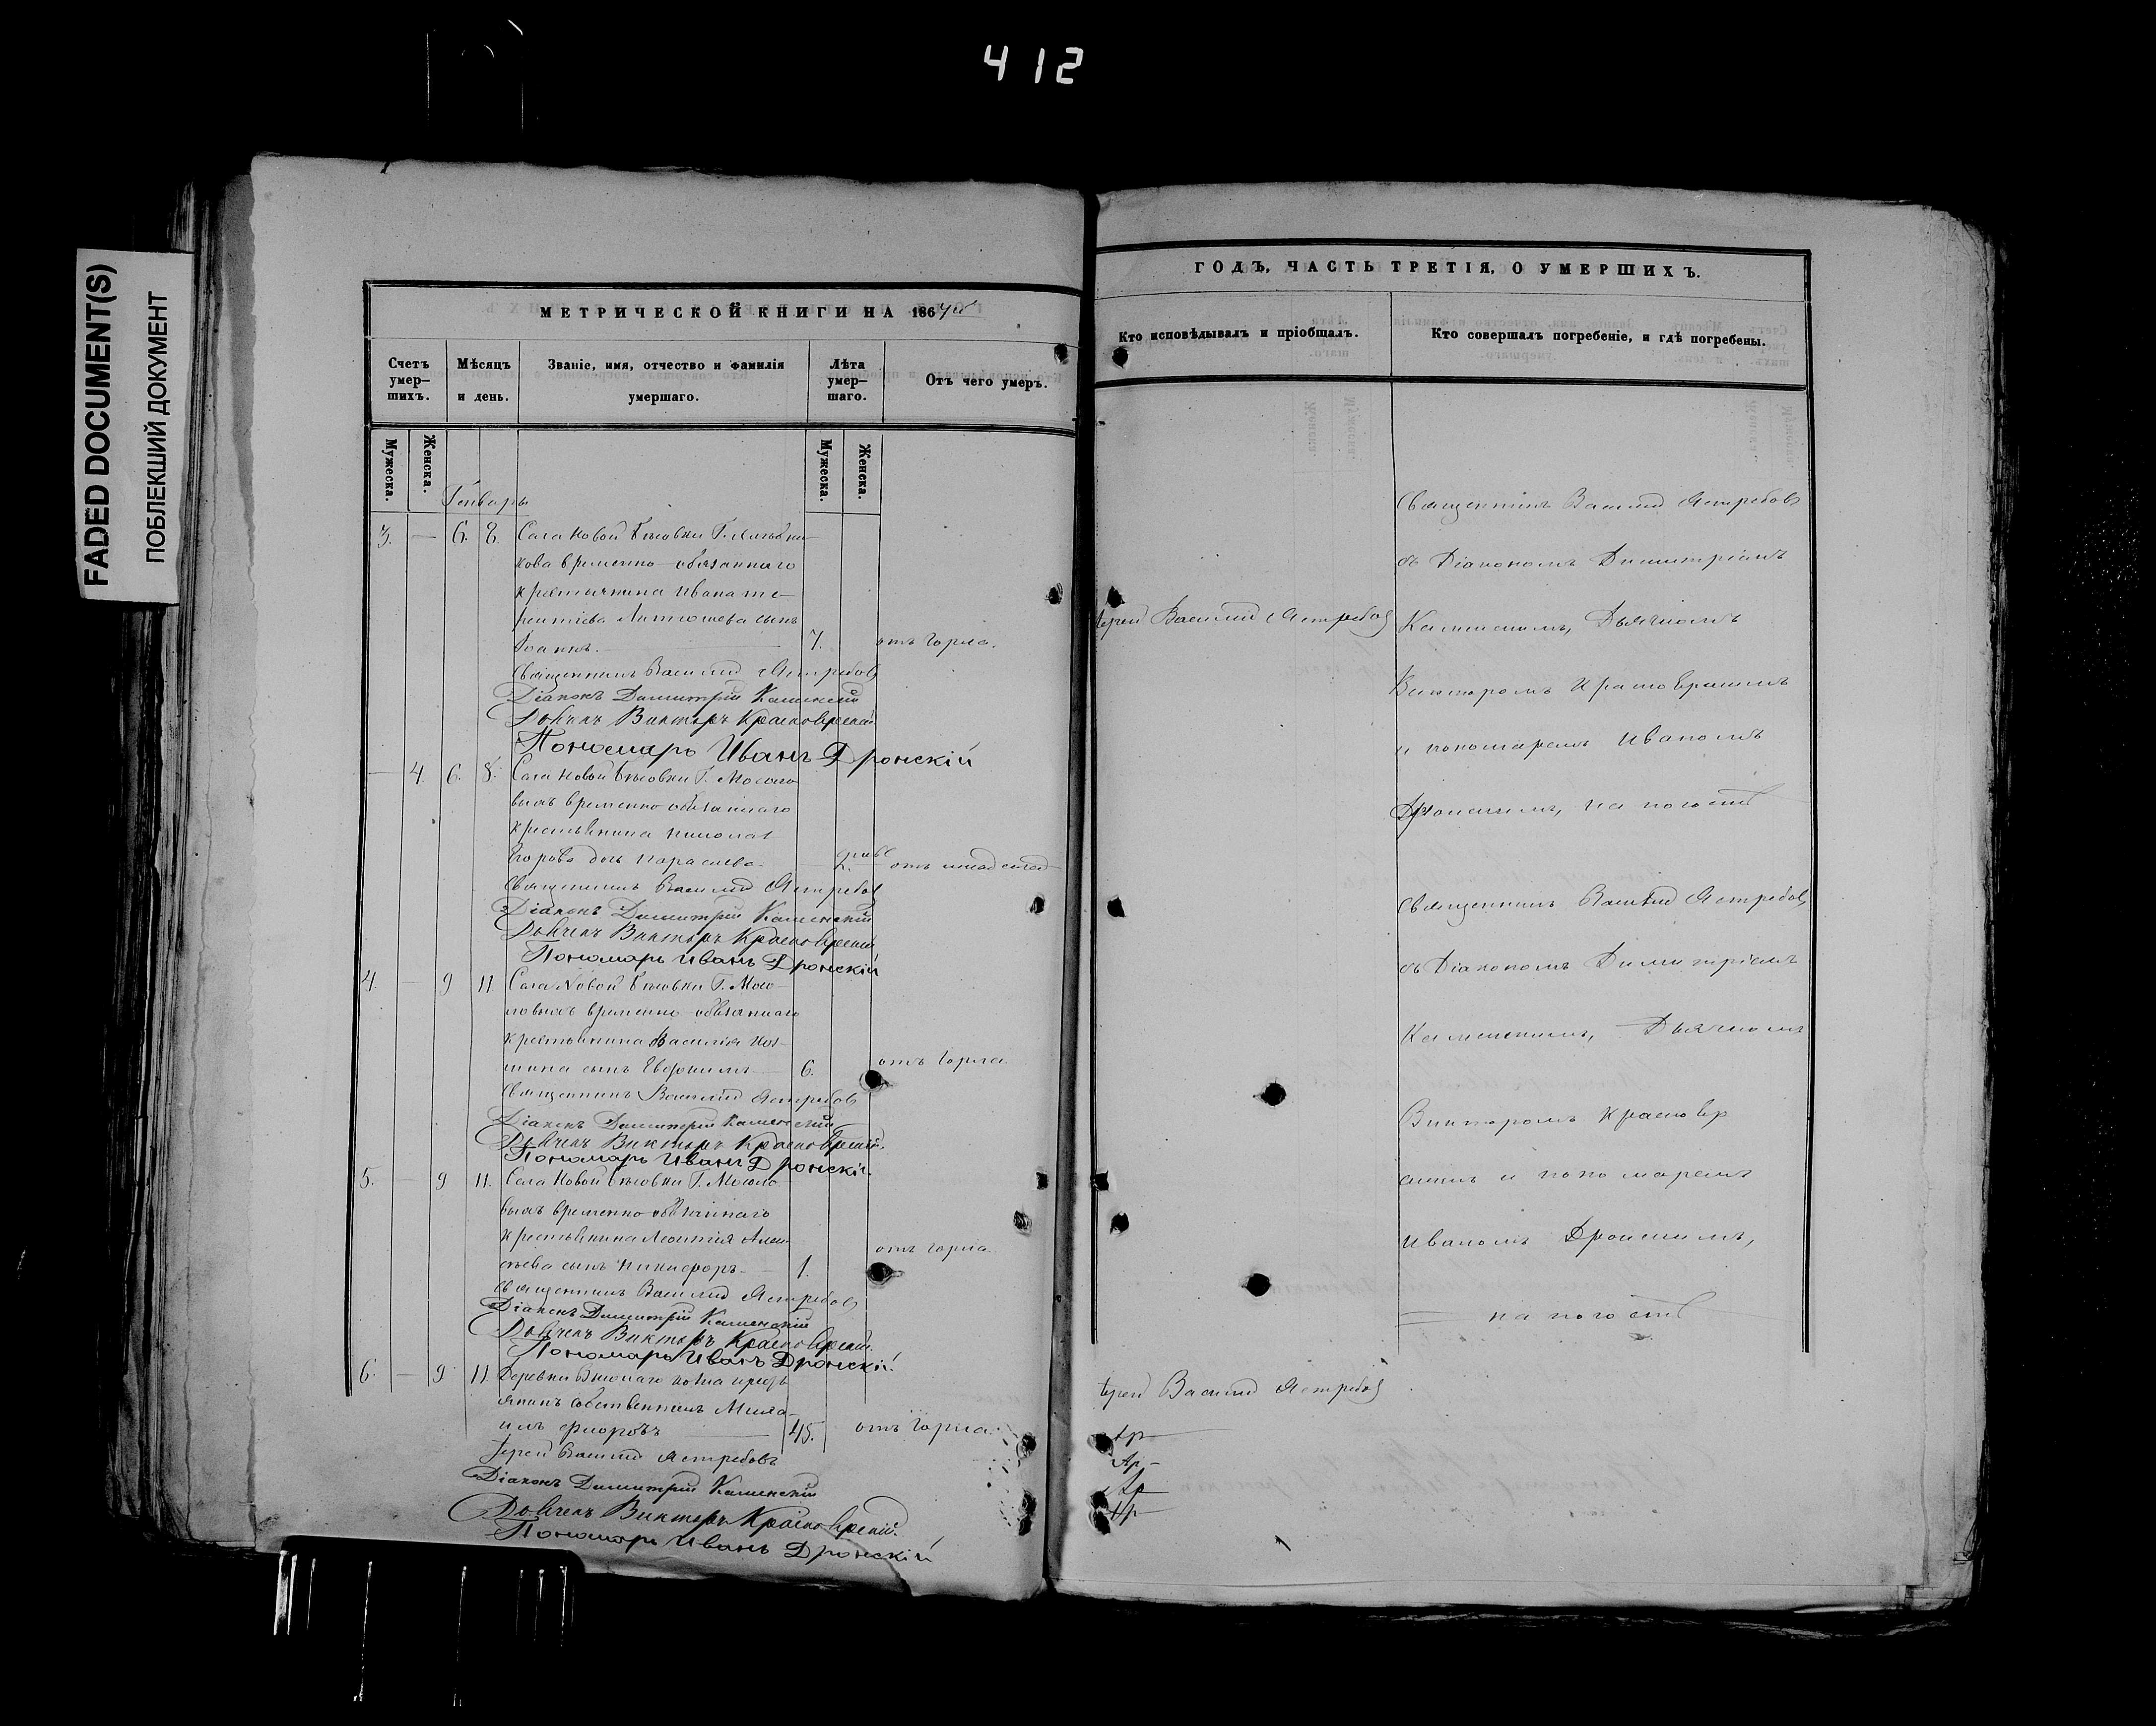 412
FADED DOCUMENT(S)
ПОБЛЕКШИЙ ДОКУМЕНТ
МЕТРИЧЕСКОЙ КНИГИ НА 186
Счетъ умер–шихъ.
Мѣсяцъ и день.
Званіе, имя, отчество и фамилія умершаго.
Лѣта умер–шаго.
Отъ чего умеръ.
Мужеска.
Женска.
Мужеска.
Женска.
Генварь
3. — 6. 8. Села Новой
кова временно-обязаннаго
крестьянина Ивана Те–
рентіева сынъ
Іоаннъ. 7. отъ горла.
Священникъ Василій Ястребовъ
Діаконъ Димитрій Каменскій
Дьячекъ Викторъ
Пономарь Иванъ Дронскій
— 4. 6. 8. Села Новой
выхъ временно-обязаннаго
крестьянина Николая
Егорова дочь Параскева
Священникъ Василій Ястребовъ
Діаконъ Димитрій Каменскій
Дьячекъ Викторъ
Пономарь Иванъ Дронскій
4. — 9 11. Села Новой
временно-обязаннаго
крестьянина Василія
сынъ Евфимъ 6. отъ горла
Священникъ Василій Ястребовъ
Діаконъ Димитрій Каменскій
Дьячекъ Викторъ
Пономарь Иванъ Дронскій
5. — 9 11. Села Новой
выхъ временно-обязаннаго
крестьянина Леонтія Алек–
сѣева сынъ Никифоръ 1. отъ горла
Священникъ Василій Ястребовъ
Діаконъ Димитрій Каменскій
Дьячекъ Викторъ
Пономарь Иванъ Дронскій
6. — 9 11. Деревни крестъ
янинъ собственникъ Миха–
илъ 45. отъ горла.
Іерей Василій Ястребовъ
Діаконъ Димитрій Каменскій
Дьячекъ Викторъ
Пономарь Иванъ Дронскій
ГОДЪ, ЧАСТЬ ТРЕТІЯ, О УМЕРШИХЪ.
Кто исповѣдывалъ и пріобщалъ.
Кто совершалъ погребеніе, и гдѣ погребены.
Іерей Василій Ястребовъ
Іерей Василій Ястребовъ
Священникъ Василій Ястребовъ
съ Діакономъ Димитріемъ
Каменскимъ, Дьячкомъ
Викторомъ
и пономаремъ Иваномъ
Дронскимъ, на погостѣ
Священникъ Василій Ястребовъ,
съ Діакономъ Димитріемъ
Каменскимъ, Дьячкомъ
Викторомъ
скимъ и пономаремъ
Иваномъ Дронскимъ,
на погостѣ